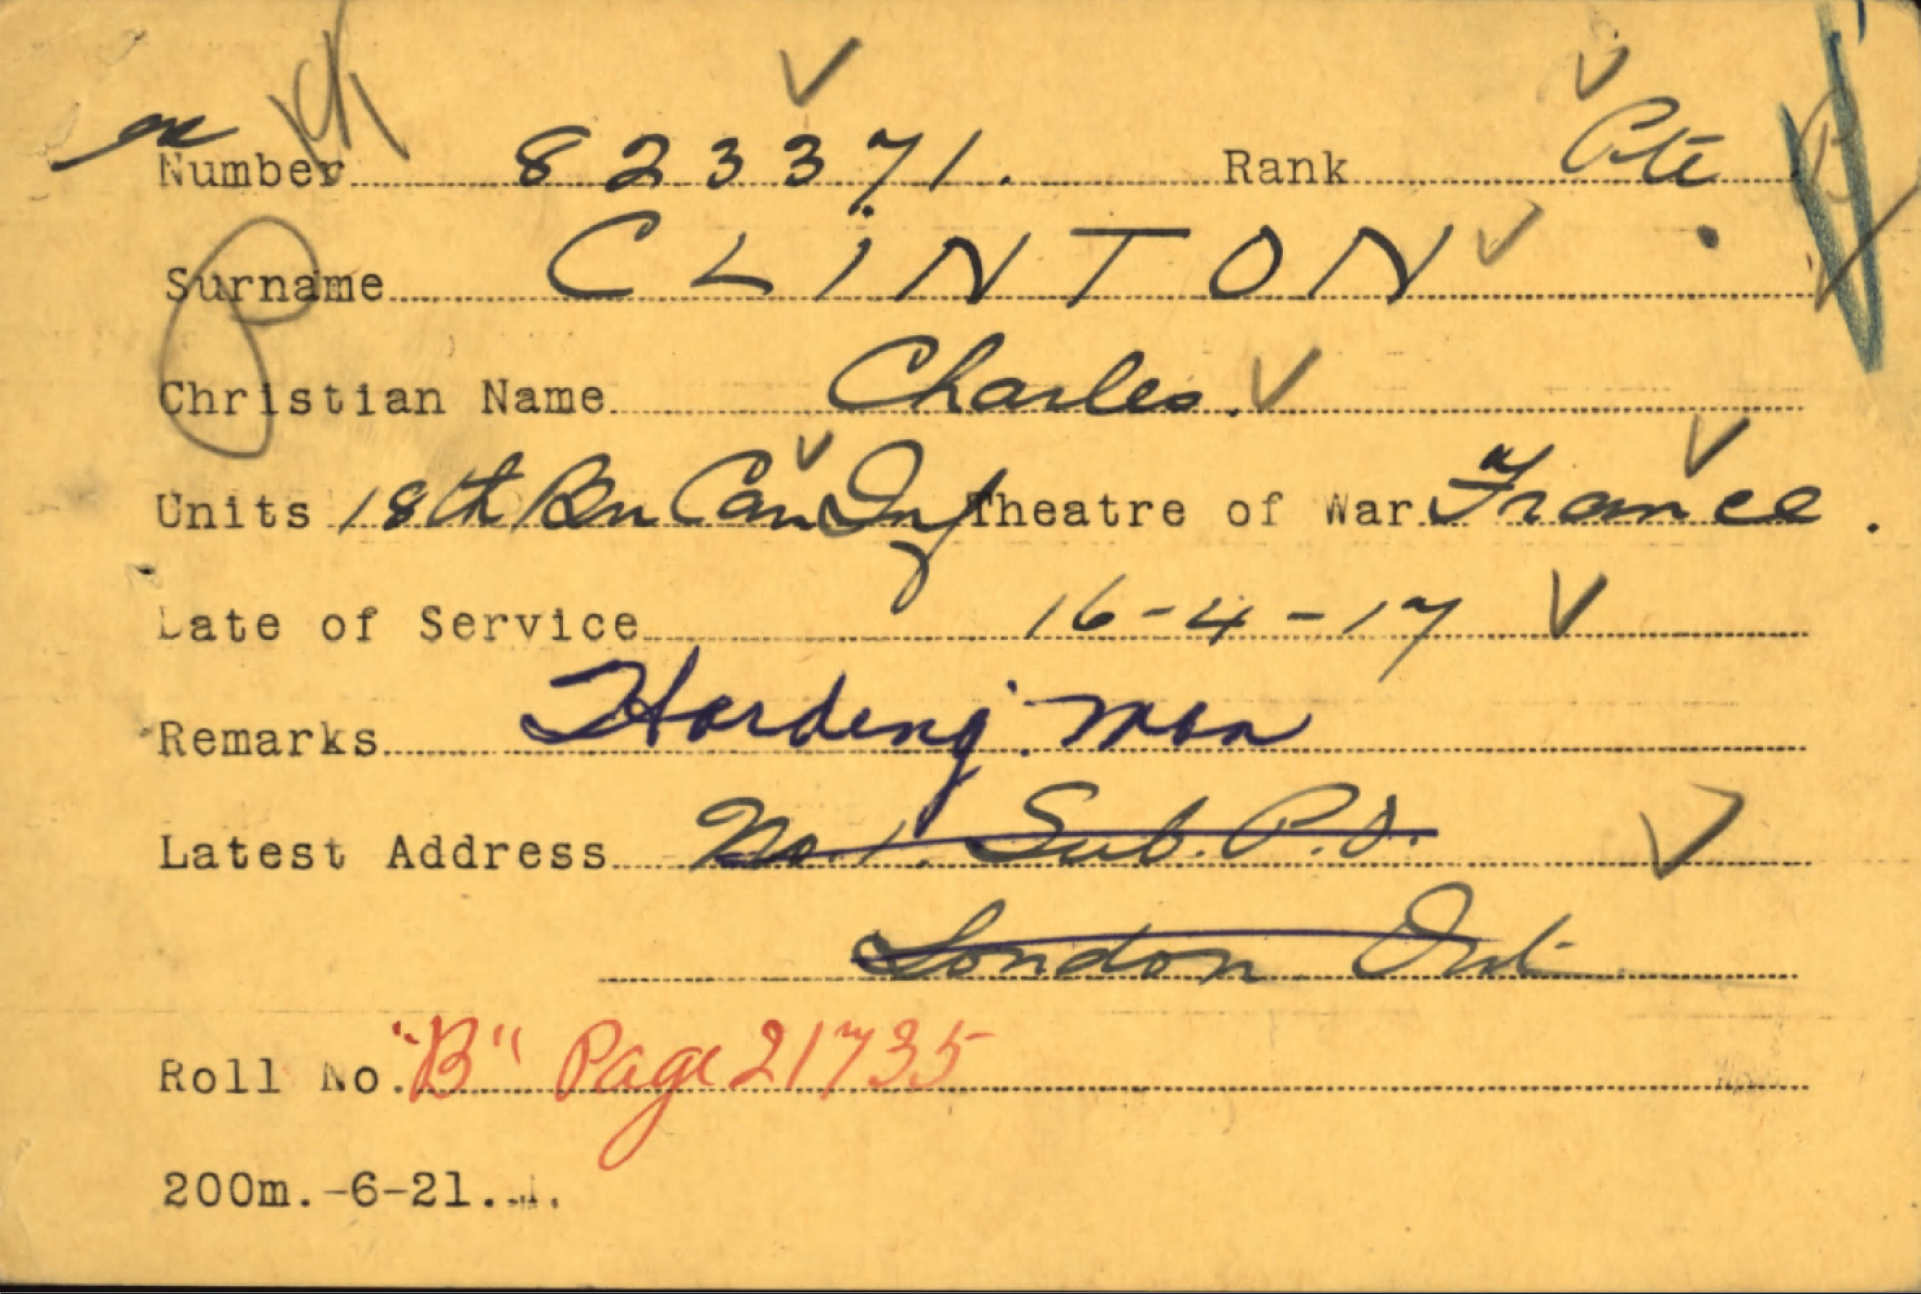 Number 823371. Rank Pte
Surname CLINTON
Christian Name Charles.
Units 18th Bn Can Inf Theatre of War France.
Date of Service 16-4-17
Remarks Harding. Man
Latest Address No. 1. Sub. P.O.
London Ont.
Roll No. "B" Page 21735
200m.-6-21.